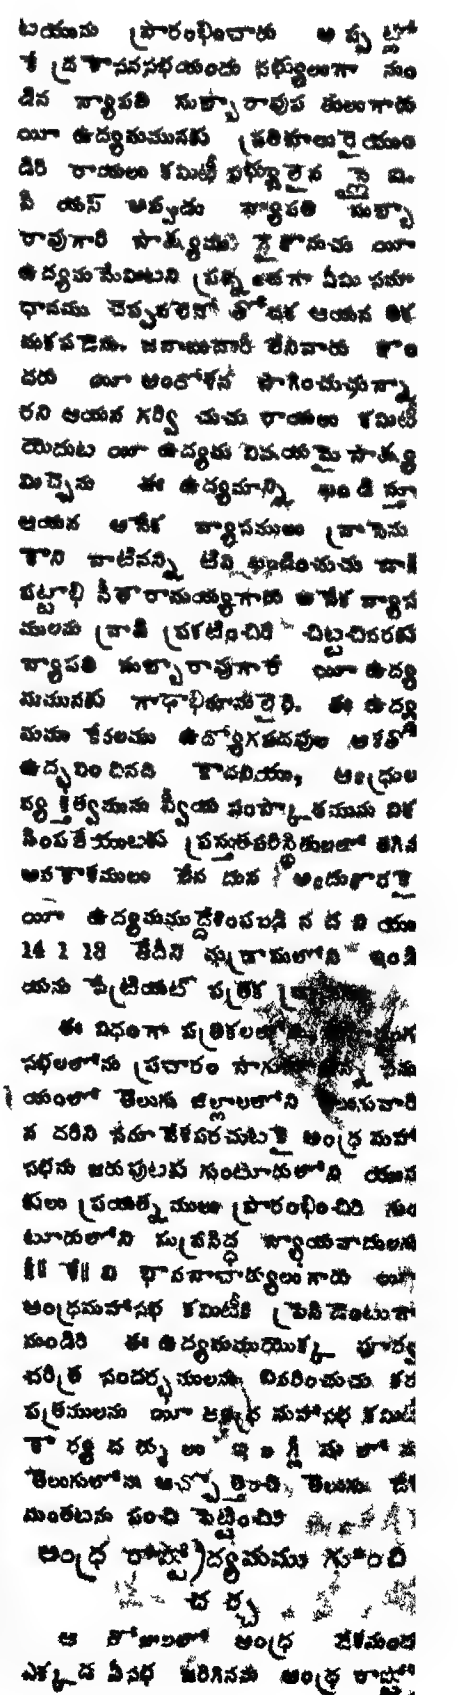 టయును ప్రారంభించారు అ ప్ప ట్లో
కే ద్ర శాసనసభయందు సభ్యులుగా నుం
డిన న్యాపతి సుబ్బారావుప తులుగారు
యీ ఉద్యమమునకు ప్రతికూలురై యుం
డిరి రాయలు కమిటీ సభ్యులైన
వి యస్ అప్పుడు న్యాపతి సుబ్బా
రావుగారి సాక్ష్యము గైకొనుచు యీ
ఉద్యమమేమిటని ప్రశ్ని ంచగా ఏమి సమా
ధానము చెప్పవలెనో తోచక ఆయన తిక
మకపడెను. జవాబుదారీ లేనివారు కొం
దరు యీ ఆందోళన సాగించుచున్నా
రని ఆయన గర్వి ంచుచు రాయలు కమిటీ
యెదుట యీ ఉద్యమ విషయమై సాక్ష్య
మిచ్చెను ఈ ఉద్యమాన్ని ఖం డి స్తూ
ఆయన అనేక వ్యాసములు వ్రాసెను
కాని వాటినన్ని టిని ఖండించుచు డాక్ట
పట్టాభి సీతారామయ్యగారు అనేక వ్యాస
ములను వ్రాసి ప్రకటించిరి చిట్టచివరకు
న్యాపతి సుబ్బారావుగారే యీ ఉద్య
మమునకు గాఢాభిమానులైరి. ఈ ఉద్య
మము కేవలము ఉద్యోగపదవుల ఆశతో
ఉద్భవించినది కాదనియు, ఆంధ్రుల
వ్య క్తిత్వమును స్వీయ సంస్కా రమును విక
సింపజేయుటకు ప్రస్తుతపరిస్థితులలో తగిన
అవకాశములు లేన దున అందుకొరకై
యీ ఉద్యమముద్దేశింపబడి న ద ని యు
14 1 13 తేదీని మద్రాసులోని ఇండి
యను పేట్రియట్ పత్రిక
ఈ విధంగా పత్రికలలోను,
సభలలోను ప్రచారం
యంలో తెలుగు జిల్లాలలోని
న దరిని సమావేశపరచుటకై ఆంధ్ర మహా
సభను జరుపుటకు గుంటూరులోని యువ
కులు ప్రయత్న ములు ప్రారంభించిరి గుం
టూరులోని సుప్రసిద్ధ న్యాయవాదులగు
కీ॥ శే॥ వి భావనాచార్యులుగారు యీ
ఆంధ్రమహాసభ కమిటీకి ప్రెసిడెంటుగా
నుండిరి ఈ ఉద్యమముయొక్క పూర్వ
చరిత్ర సందర్భములను వివరించుచు కర
పత్రములను యీ ఆంధ్ర మహాసభ కమిటీ
కా ర్య ద ర్శు లు ఇ ం గ్లీ షు లో ను
తెలుగులోను అచ్చొత్తించి, తెలుగు దేశ
మంతటను పంచి పెట్టించిరి
ఆంధ్ర రాష్ట్రోద్యమము గురించి
చ ర్చ
ఆ రోజులలో ఆంధ్ర దేశమందు
ఎక్కడ ఏసభ జరిగినను ఆంధ్ర రాష్ట్రో